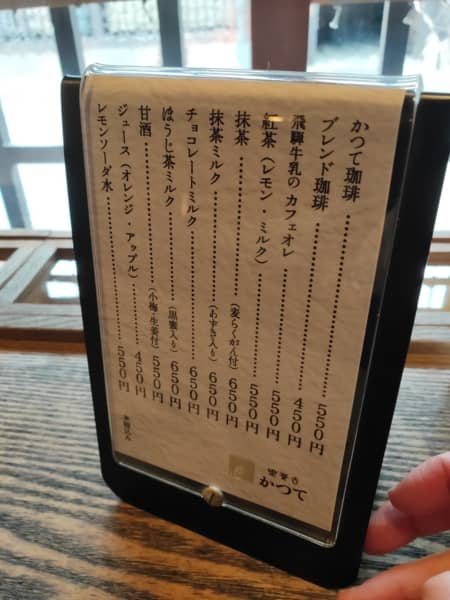 かつて珈琲……550円
ブレンド珈琲……450円
飛騨牛乳の カフェオレ……550円
紅茶（レモン・ミルク）……550円
抹茶……（麦らくがん付）650円
抹茶ミルク……（あずき入り）650円
チョコレートミルク……650円
ほうじ茶ミルク……（黒蜜入り）650円
甘酒……（小梅・生姜付）550円
ジュース（オレンジ・アップル）……450円
レモンソーダ水……550円
※税込み
喫茶去
かつて